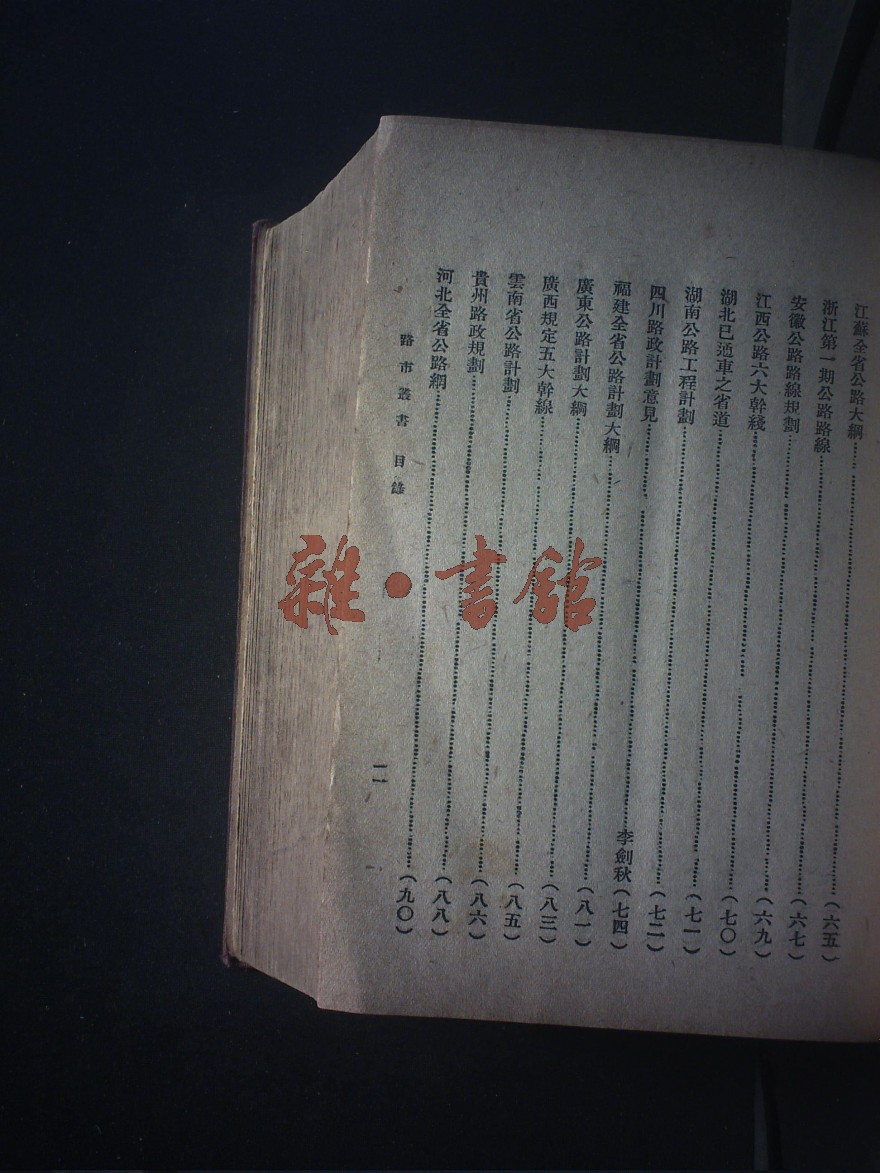 江蘇全省公路大綱……（六五）
浙江第一期公路路線……（六七）
安徽公路路線規劃……（六九）
江西公路六大幹綫……（七〇）
湖北已通車之省道……（七一）
湖南公路工程計劃……（七二）
四川路政計劃意見……李劍秋（七四）
福建全省公路計劃大綱……（八一）
廣東公路計劃大綱……（八三）
廣西規定五大幹線……（八五）
雲南省公路計劃……（八六）
貴州路政規劃……（八八）
河北全省公路網……（九〇）
路市叢書 目錄
二
雜·書館